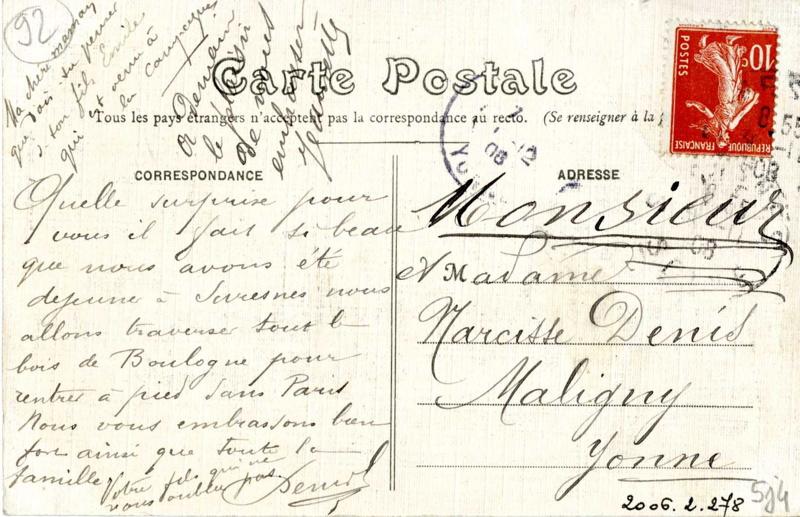 92
Ma chère maman
que dois tu penser
de ton fils Emile
qui est venu à
la campagne
A Demain
le plaisir
de vous
embrasser
Carte Postale
Tous les pays étrangers n'acceptent pas la correspondance au recto. (Se renseigner à la
CORRESPONDANCE
Quelle surprise pour
vous il fait si beau
que nous avons été
dejeuné à Suresnes nous
allons traverser tout le
bois de Boulogne pour
rentrer à pied dans Paris
Nous vous embrassons bien
fort ainsi que toute la
famille
Votre fils qui ne
vous oublie pas
Denis
ADRESSE
Monsieur
et Madame
Narcisse Denis
Maligny
Yonne
10c
POSTES
REPUBLIQUE FRANÇAISE
08
2006.2.278
5j4